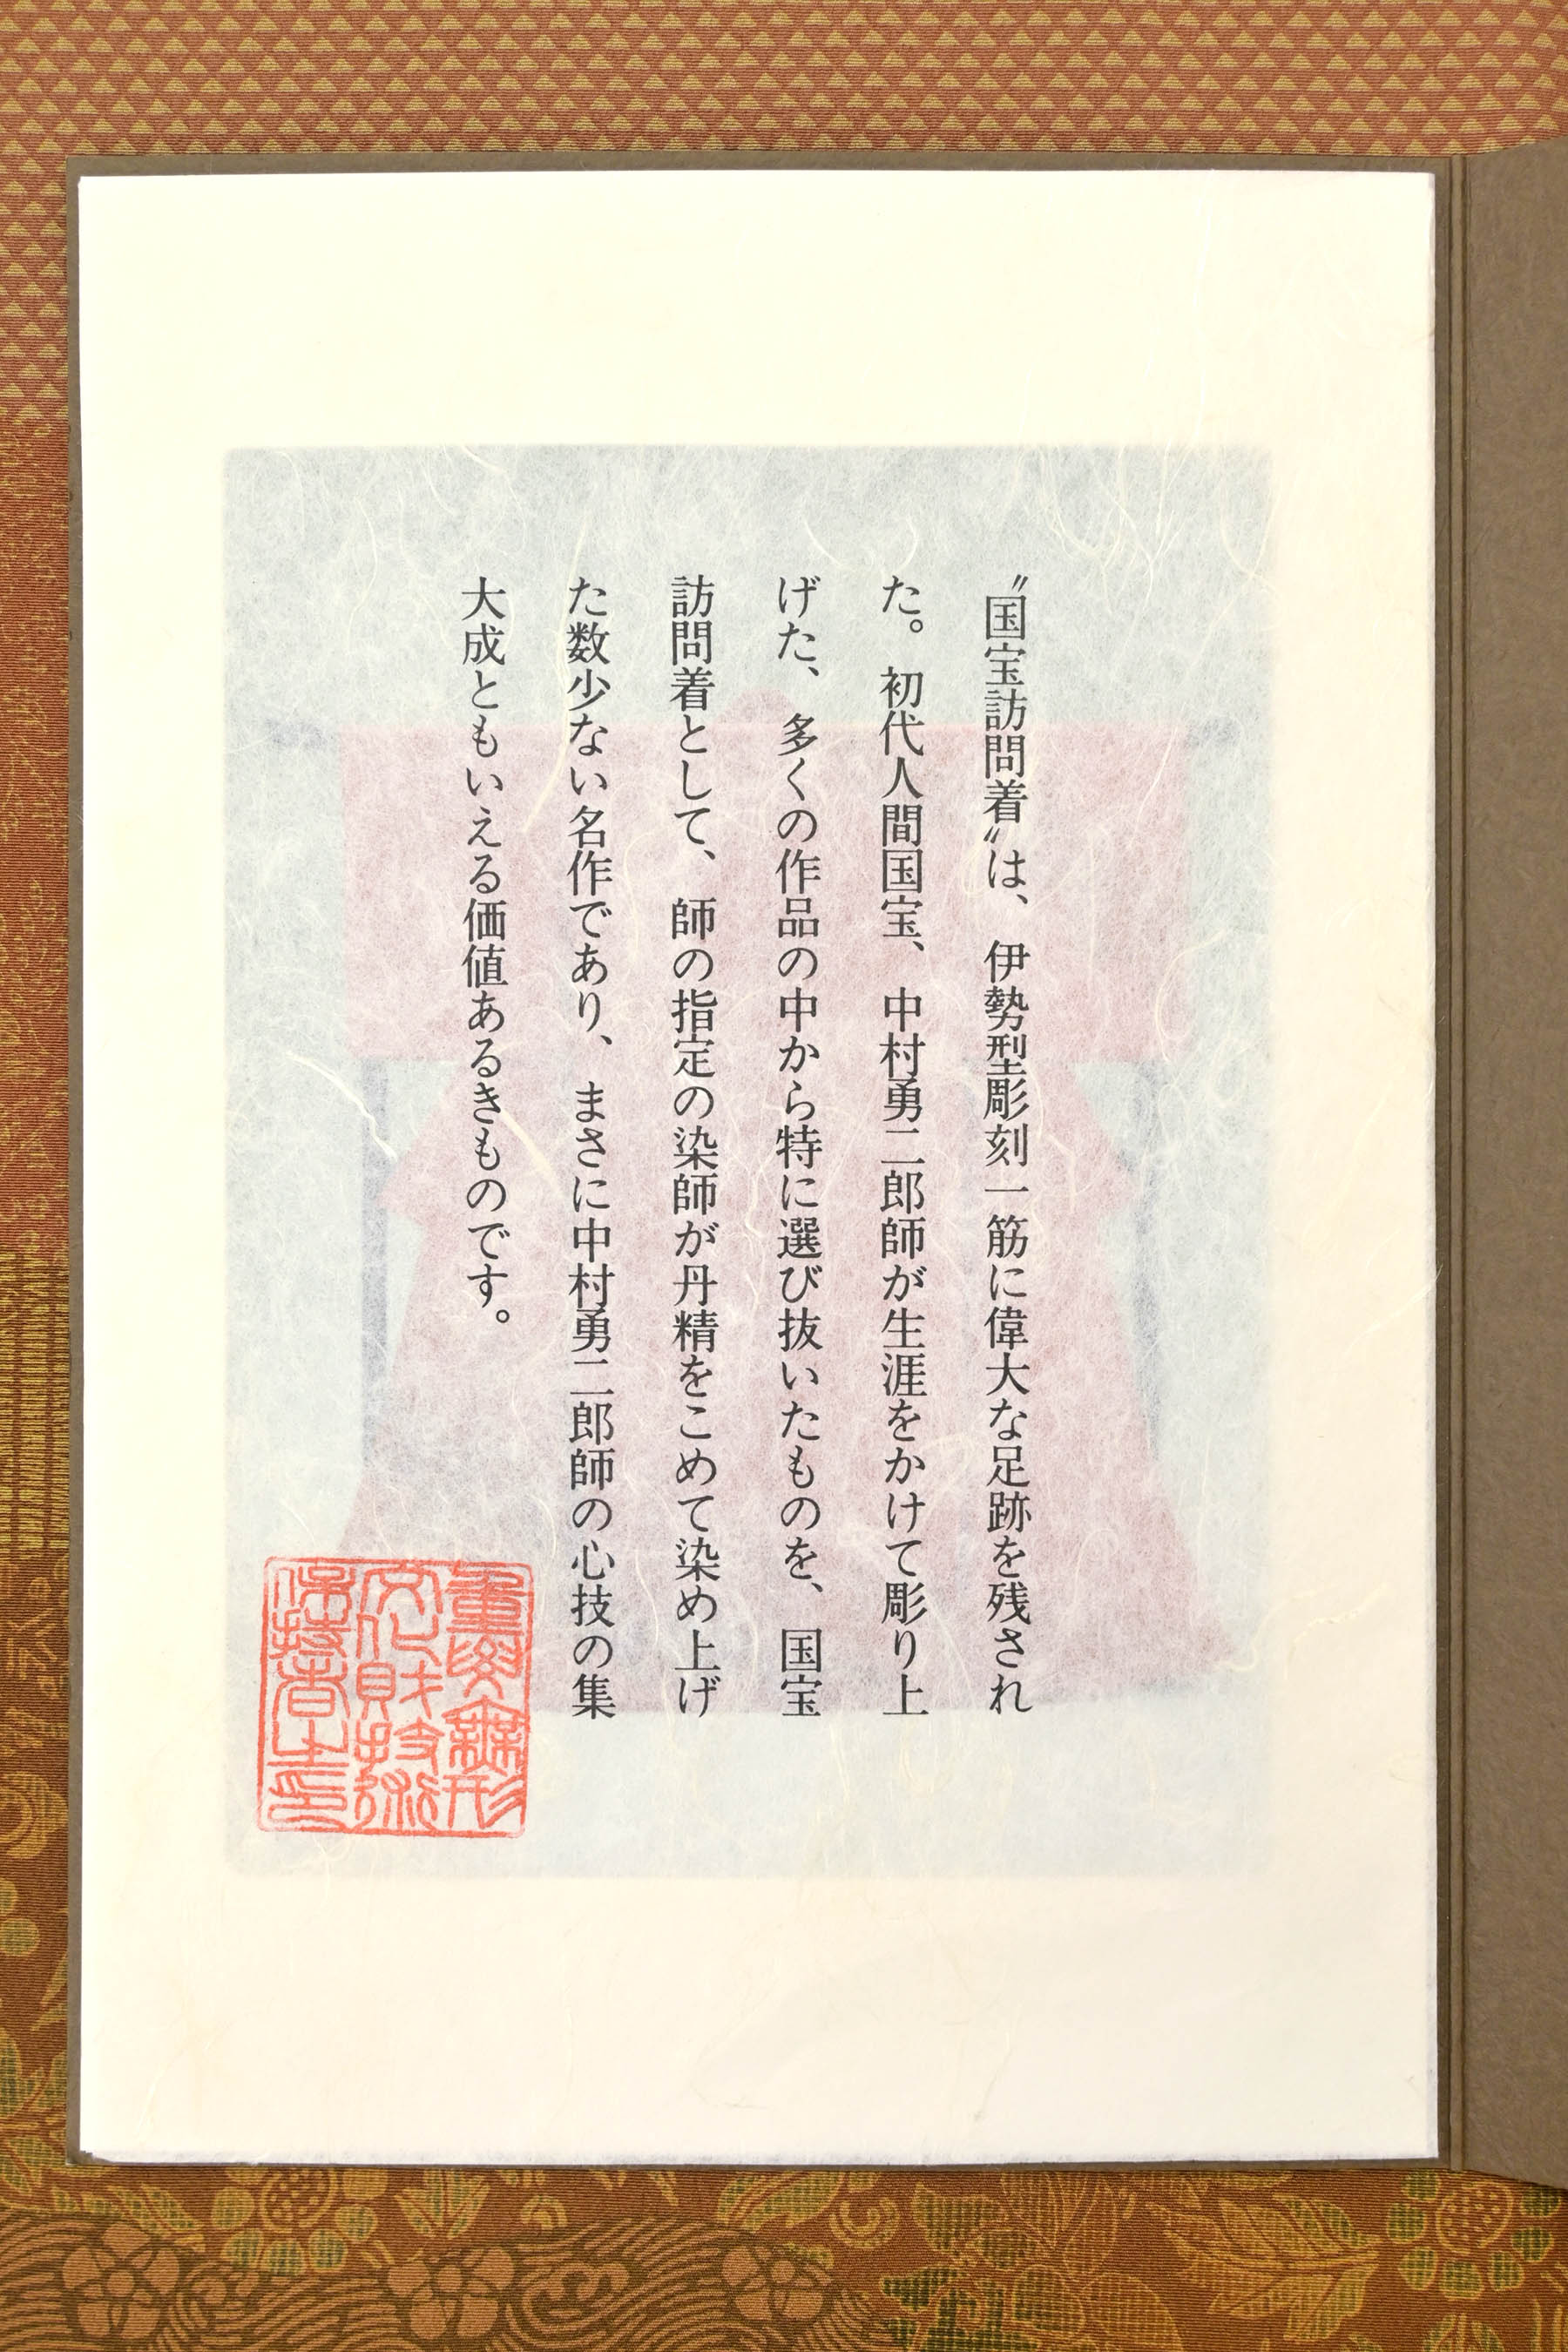 〝国宝訪問着〟は、伊勢型彫刻一筋に偉大な足跡を残され
た。初代人間国宝、中村勇二郎師が生涯をかけて彫り上
げた、多くの作品の中から特に選び抜いたものを、国宝
訪問着として、師の指定の染師が丹精をこめて染め上げ
た数少ない名作であり、まさに中村勇二郎師の心技の集
大成ともいえる価値あるきものです。
重要無形
文化財技術
保持者之印